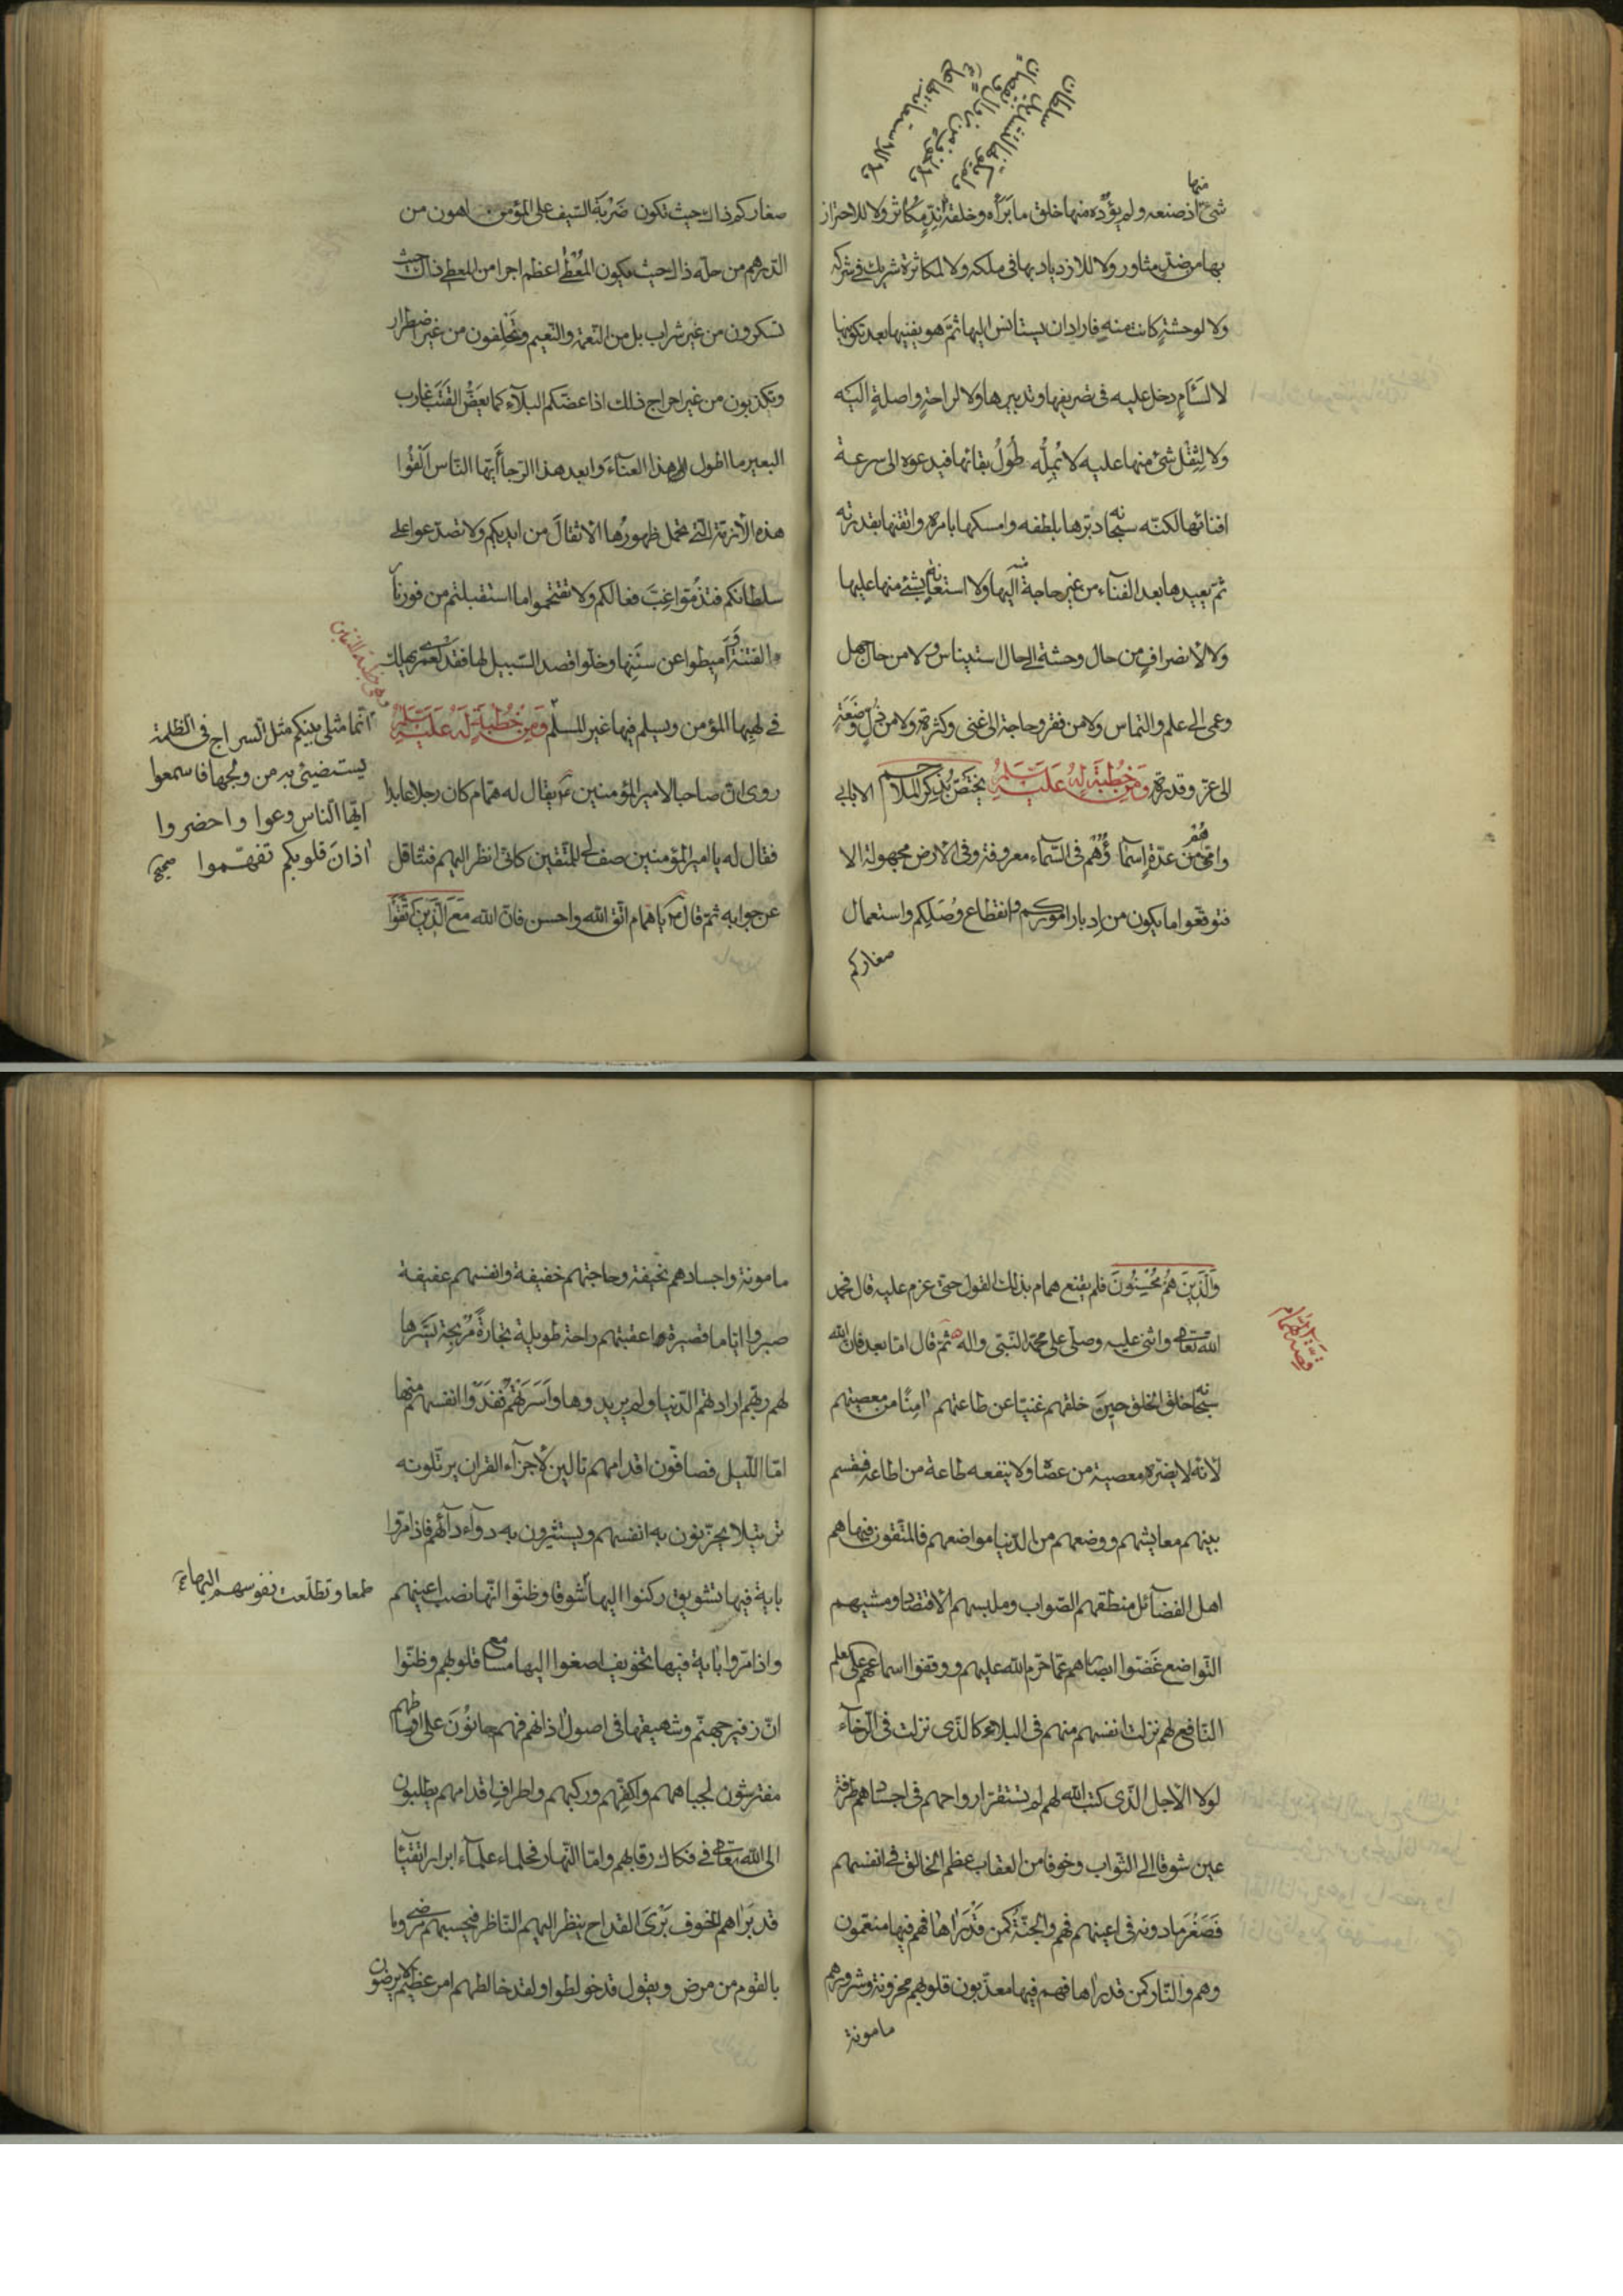 شئ اذ صنعه ولم يؤده منها خلق ما برأه وخلقه ند مكاثر ولا للاحتراز
منها
بها من ضد مثاور ولا للازدياد بها فى ملكه ولا لمكاثرة شريك فى شركه
ولا لوحشة كانت منه فاراد ان يستانس اليها ثم هو يفنيها بعد تكوينها
لا لسأم دخل عليه فى تصريفها وتدبيرها ولا لراحة واصلة اليه
ولا لثقل شئ منها عليه لا يمله طول بقائها فيدعوه الى سرعة
افنائها لكنه سبحانه دبرها بلطفه وامسكها بامره واتقنها بقدرته
ثم يعيدها بعد الفناء من غير حاجة منه اليها ولا استعانة بشئ منها عليها
ولا لانصراف من حال وحشة الى حال استيناس ولا من حال جهل
وعمى الى علم والتماس ولا من فقر وحاجة الى غنى وكثرة ولا من ذل وضعة
الى عز وقدرة ومن خطبة له عليه السلام يختص بذكر الملاحم الا بابى
وامى هم من عدة اسماؤهم فى السماء معروفة وفى الارض مجهولة الا
فتوقعوا ما يكون من ادبار اموركم وانقطاع وصلكم واستعمال
صغاركم
صغاركم ذاك حيث تكون ضربة السيف على المؤمن اهون من
الدرهم من حله ذاك حيث يكون المعطى اعظم اجرا من المعطى ذاك حيث
تسكرون من غير شراب بل من النعمة والنعيم وتحلفون من غير اضطرار
وتكذبون من غير احراج ذلك اذا عضكم البلاء كما يعض القتب غارب
البعير ما اطول هذا العناء وابعد هذا الرجا ايها الناس القوا
هذه الازمة التى تحمل ظهورها الاثقال من ايديكم ولا تصدعوا على
سلطانكم فتذموا غب فعالكم ولا تقتحموا ما استقبلتم من فور نار
الفتنة واميطوا عن سننها وخلوا قصد السبيل لها فقد لعمرى يهلك
فى لهبها المؤمن ويسلم فيها غير المسلم ومن خطبة له عليه السلام
انما مثلى بينكم مثل السراج فى الظلمة
يستضيئ به من ولجها فاسمعوا
ايها الناس وعوا واحضروا
اذان قلوبكم تفهموا صح
روى ان صاحبا لامير المؤمنين ع يقال له همام كان رجلا عابدا
فقال له يا امير المؤمنين صف لى المتقين كانى انظر اليهم فتثاقل
عن جوابه ثم قال ع يا همام اتق الله واحسن فان الله مع الذين اتقوا
والذين هم محسنون فلم يقنع همام بذلك القول حتى عزم عليه قال فحمد
الله تعالى واثنى عليه وصلى على محمد النبى واله ثم قال اما بعد فان الله
سبحانه خلق الخلق حين خلقهم غنيا عن طاعتهم امنا من معصيتهم
لانه لا يضره معصية من عصاه ولا ينفعه طاعة من اطاعه فقسم
بينهم معايشهم ووضعهم من الدنيا مواضعهم فالمتقون فيها هم
اهل الفضائل منطقهم الصواب وملبسهم الاقتصاد ومشيهم
التواضع غضوا ابصارهم عما حرم الله عليهم ووقفوا اسماعهم على العلم
النافع لهم نزلت انفسهم منهم فى البلاء كالذى نزلت فى الرخاء
لولا الاجل الذى كتب الله لهم لم تستقر ارواحهم فى اجسادهم طرفة
عين شوقا الى الثواب وخوفا من العقاب عظم الخالق فى انفسهم
فصغر ما دونه فى اعينهم فهم والجنة كمن قد راها فهم فيها منعمون
وهم والنار كمن قد راها فهم فيها معذبون قلوبهم محزونة وشرورهم
مامونة
مامونة واجسادهم نحيفة وحاجتهم خفيفة وانفسهم عفيفة
صبروا اياما قصيرة اعقبتهم راحة طويلة تجارة مربحة يسرها
لهم ربهم ارادتهم الدنيا ولم يريدوها واسرتهم ففدوا انفسهم منها
اما الليل فصافون اقدامهم تالين لاجزاء القران يرتلونه
ترتيلا يحزنون به انفسهم ويستثيرون به دواء دائهم فاذا مروا
باية فيها تشويق ركنوا اليها طمعا وتطلعت نفوسهم اليها شوقا وظنوا انها نصب اعينهم
واذا مروا باية فيها تخويف اصغوا اليها مسامع قلوبهم وظنوا
ان زفير جهنم وشهيقها فى اصول اذانهم فهم حانون على اوساطهم
مفترشون لجباههم واكفهم وركبهم واطراف اقدامهم يطلبون
الى الله تعالى فى فكاك رقابهم واما النهار فحلماء علماء ابرار اتقيا
قد براهم الخوف برى القداح ينظر اليهم الناظر فيحسبهم مرضى وما
بالقوم من مرض ويقول قد خولطوا ولقد خالطهم امر عظيم لا يرضون